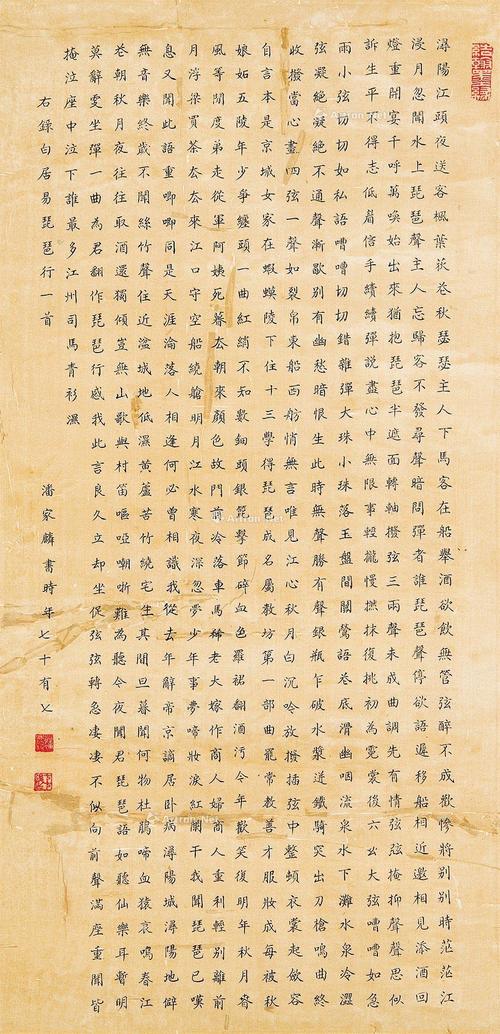 潯陽江頭夜送客楓葉荻花秋瑟瑟主人下馬客在船舉酒欲飲無管弦醉不成歡慘將別別時茫茫江
浸月忽聞水上琵琶聲主人忘歸客不發尋聲暗問彈者誰琵琶聲停欲語遲移船相近邀相見添酒回
燈重開宴千呼萬喚始出來猶抱琵琶半遮面轉軸撥弦三兩聲未成曲調先有情弦弦掩抑聲聲思似
訴生平不得志低眉信手續續彈說盡心中無限事輕攏慢撚抹復挑初為霓裳後六幺大弦嘈嘈如急
雨小弦切切如私語嘈嘈切切錯雜彈大珠小珠落玉盤間關鶯語花底滑幽咽流泉水下灘水泉冷澀
弦凝絕凝絕不通聲漸歇別有幽愁暗恨生此時無聲勝有聲銀瓶乍破水漿迸鐵騎突出刀槍鳴曲終
收撥當心畫四弦一聲如裂帛東船西舫悄無言唯見江心秋月白沉吟放撥插弦中整頓衣裳起斂容
自言本是京城女家在蝦蟆陵下住十三學得琵琶成名屬教坊第一部曲罷常教善才服妝成每被秋
娘妒五陵年少爭纏頭一曲紅綃不知數鈿頭銀篦擊節碎血色羅裙翻酒污今年歡笑復明年秋月春
風等閒度弟走從軍阿姨死暮去朝來顏色故門前冷落車馬稀老大嫁作商人婦商人重利輕別離前
月浮梁買茶去去來江口守空船繞艙明月江水寒夜深忽夢少年事夢啼妝淚紅闌干我聞琵琶已嘆
息又聞此語重唧唧同是天涯淪落人相逢何必曾相識我從去年辭帝京謫居臥病潯陽城潯陽地僻
無音樂終歲不聞絲竹聲住近湓城地低濕黃蘆苦竹繞宅生其間旦暮聞何物杜鵑啼血猿哀鳴春江
花朝秋月夜往往取酒還獨傾豈無山歌與村笛嘔啞嘲哳難為聽今夜聞君琵琶語如聽仙樂耳暫明
莫辭更坐彈一曲為君翻作琵琶行感我此言良久立卻坐促弦弦轉急淒淒不似向前聲滿座重聞皆
掩泣座中泣下誰最多江州司馬青衫濕
右錄白居易琵琶行一首
潘家麟書時年七十有